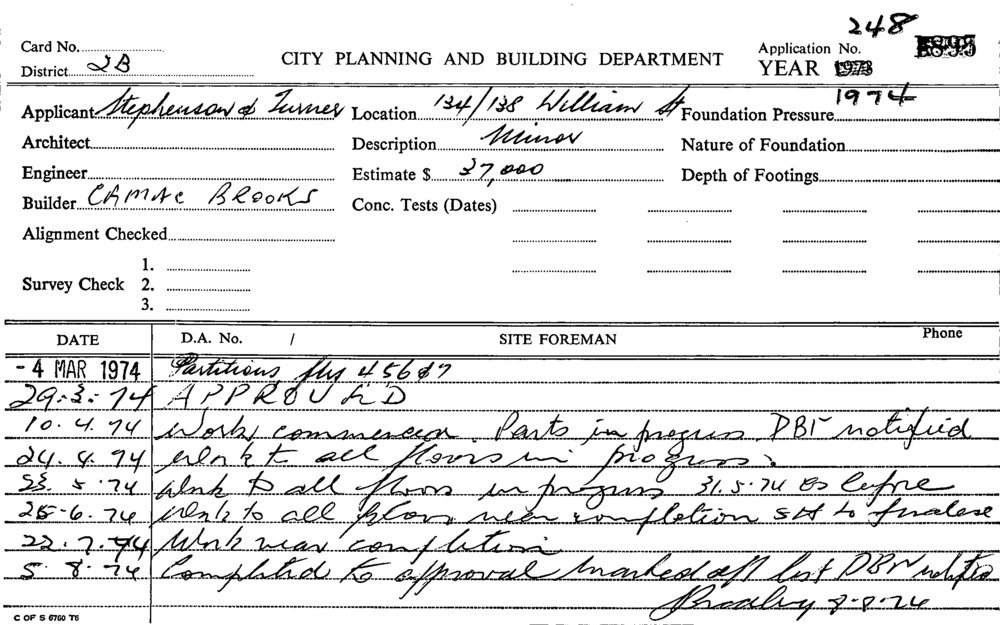 248
Card No.
CITY PLANNING AND BUILDING DEPARTMENT
Application No.
District 2B
YEAR 1973
1974
Applicant Stephenson & Turner Location 134/138 William St Foundation Pressure
Architect Description Minor Nature of Foundation
Engineer Estimate $ 37,000 Depth of Footings
Builder CAMAC BROOKS Conc. Tests (Dates)
Alignment Checked
1.
Survey Check 2.
3.
DATE D.A. No. / SITE FOREMAN Phone
- 4 MAR 1974 Partitions 4 5 6 & 7
29.3.74 APPROVED
10.4.74 Work commenced. Parts in progress notified
24.4.74 Work to all floors in progress.
5.74 Work to all floors in progress 31.5.74 as before
25.6.74 Work to all floors near completion to finalise
22.7.74 Work near completion
5.8.74 Completed to approval marked off list notified
Bradley 8.8.74
C OF S 6760 T6